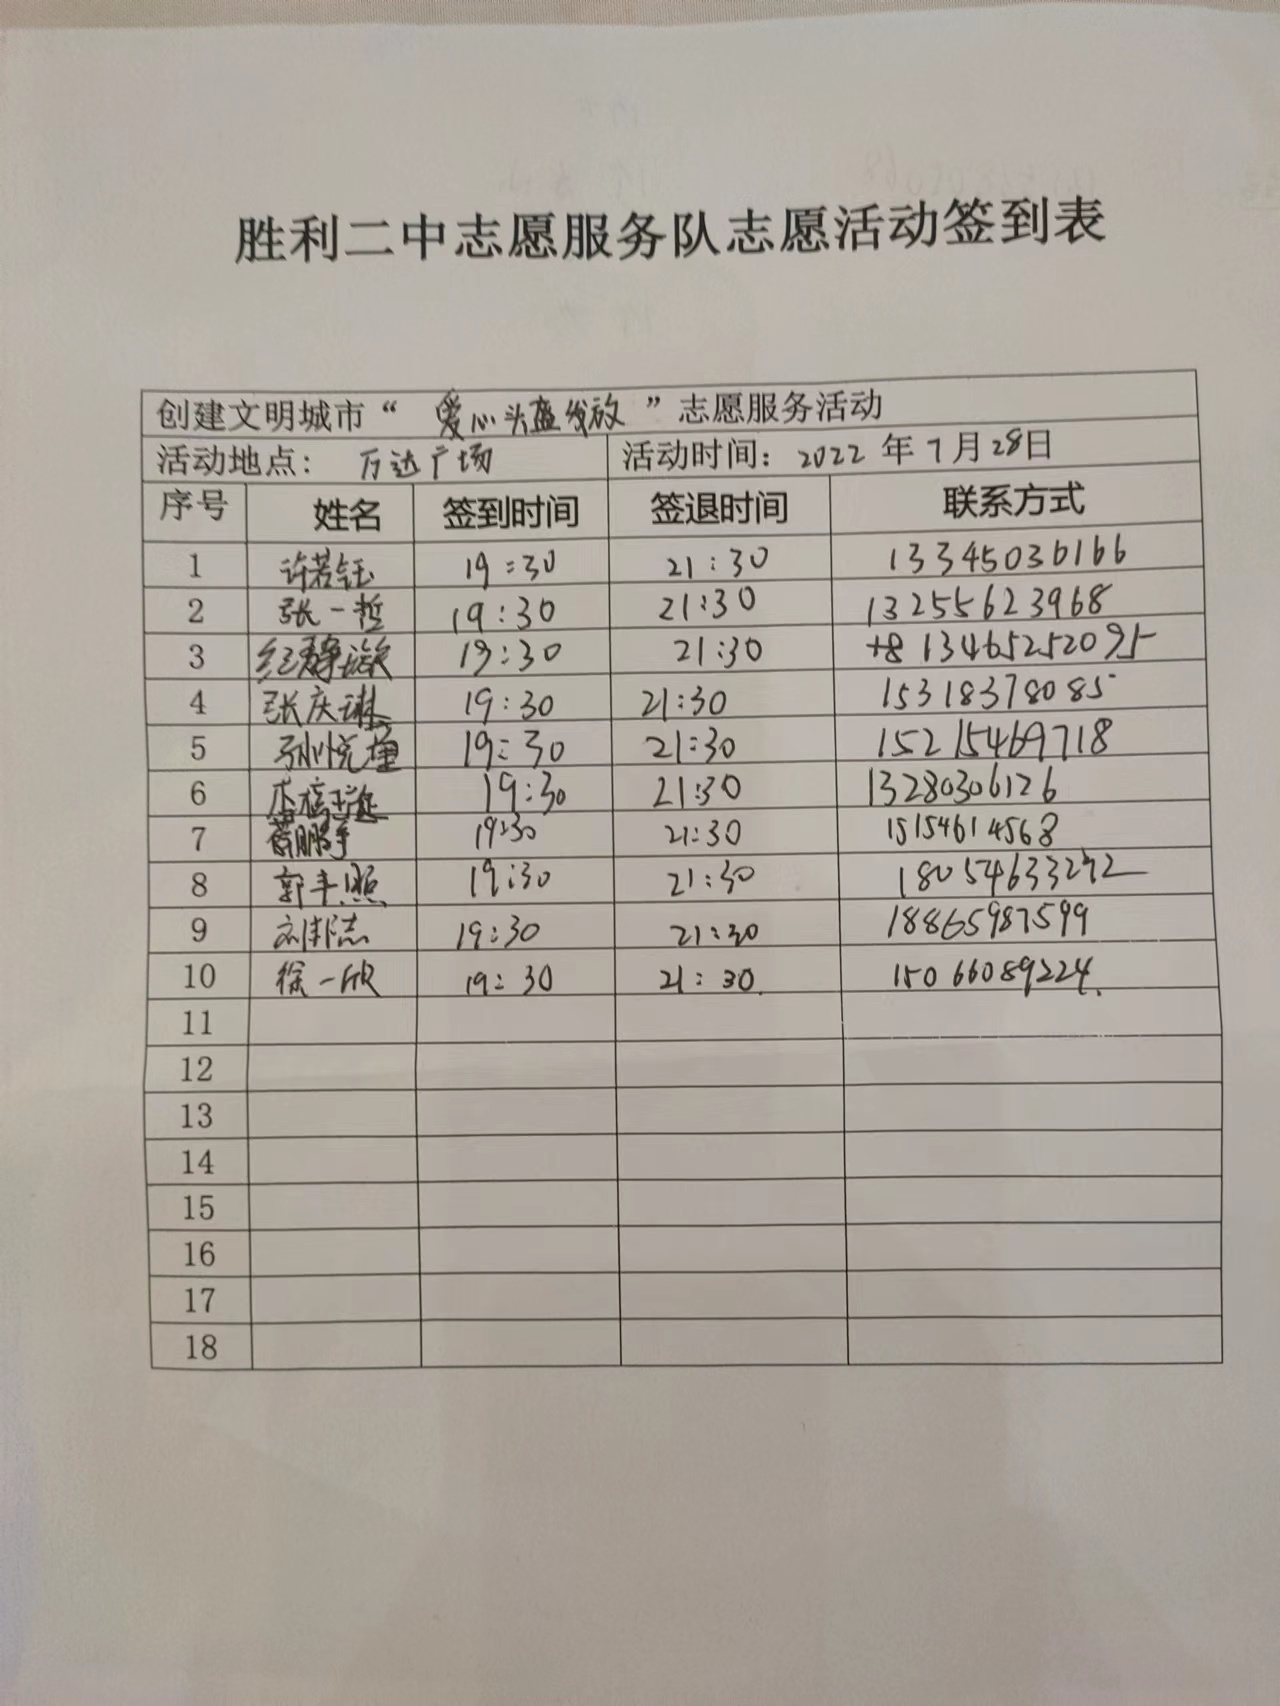 胜利二中志愿服务队志愿活动签到表
创建文明城市“ 爱心头盔发放 ”志愿服务活动
活动地点： 万达广场 活动时间：2022 年 7 月 28日
序号 姓名 签到时间 签退时间 联系方式
1 许若钰 19:30 21:30 13345036166
2 张一哲 19:30 21:30 13255623968
3 19:30 21:30 +8 13465252095
4 张庆琳 19:30 21:30 15318378085
5 孙悦 19:30 21:30 15215469718
6 19:30 21:30 13280306126
7 19:30 21:30 15154614568
8 郭丰照 19:30 21:30 18054633292
9 19:30 21:30 18865987599
10 徐一欣 19:30 21:30. 15066089224.
11
12
13
14
15
16
17
18